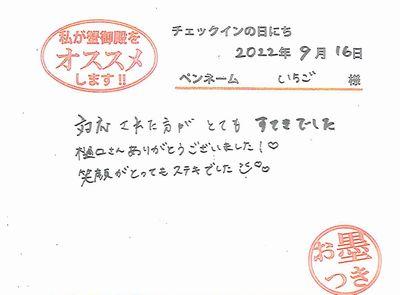 私が蟹御殿を
オススメ
します!!
チェックインの日にち
2022年 9月 16日
ペンネーム いちご 様
対応された方が とても すてきでした
樋口さんありがとうございました!♡
笑顔がとってもステキでした☺♡♡
お墨
つき